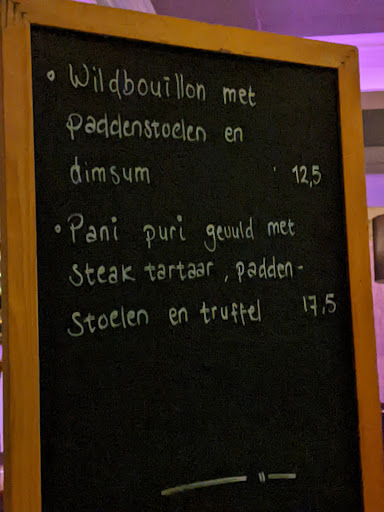 • Wildbouillon met
paddenstoelen en
dimsum 12,5
• Pani puri gevuld met
steak tartaar, padden-
stoelen en truffel 17,5